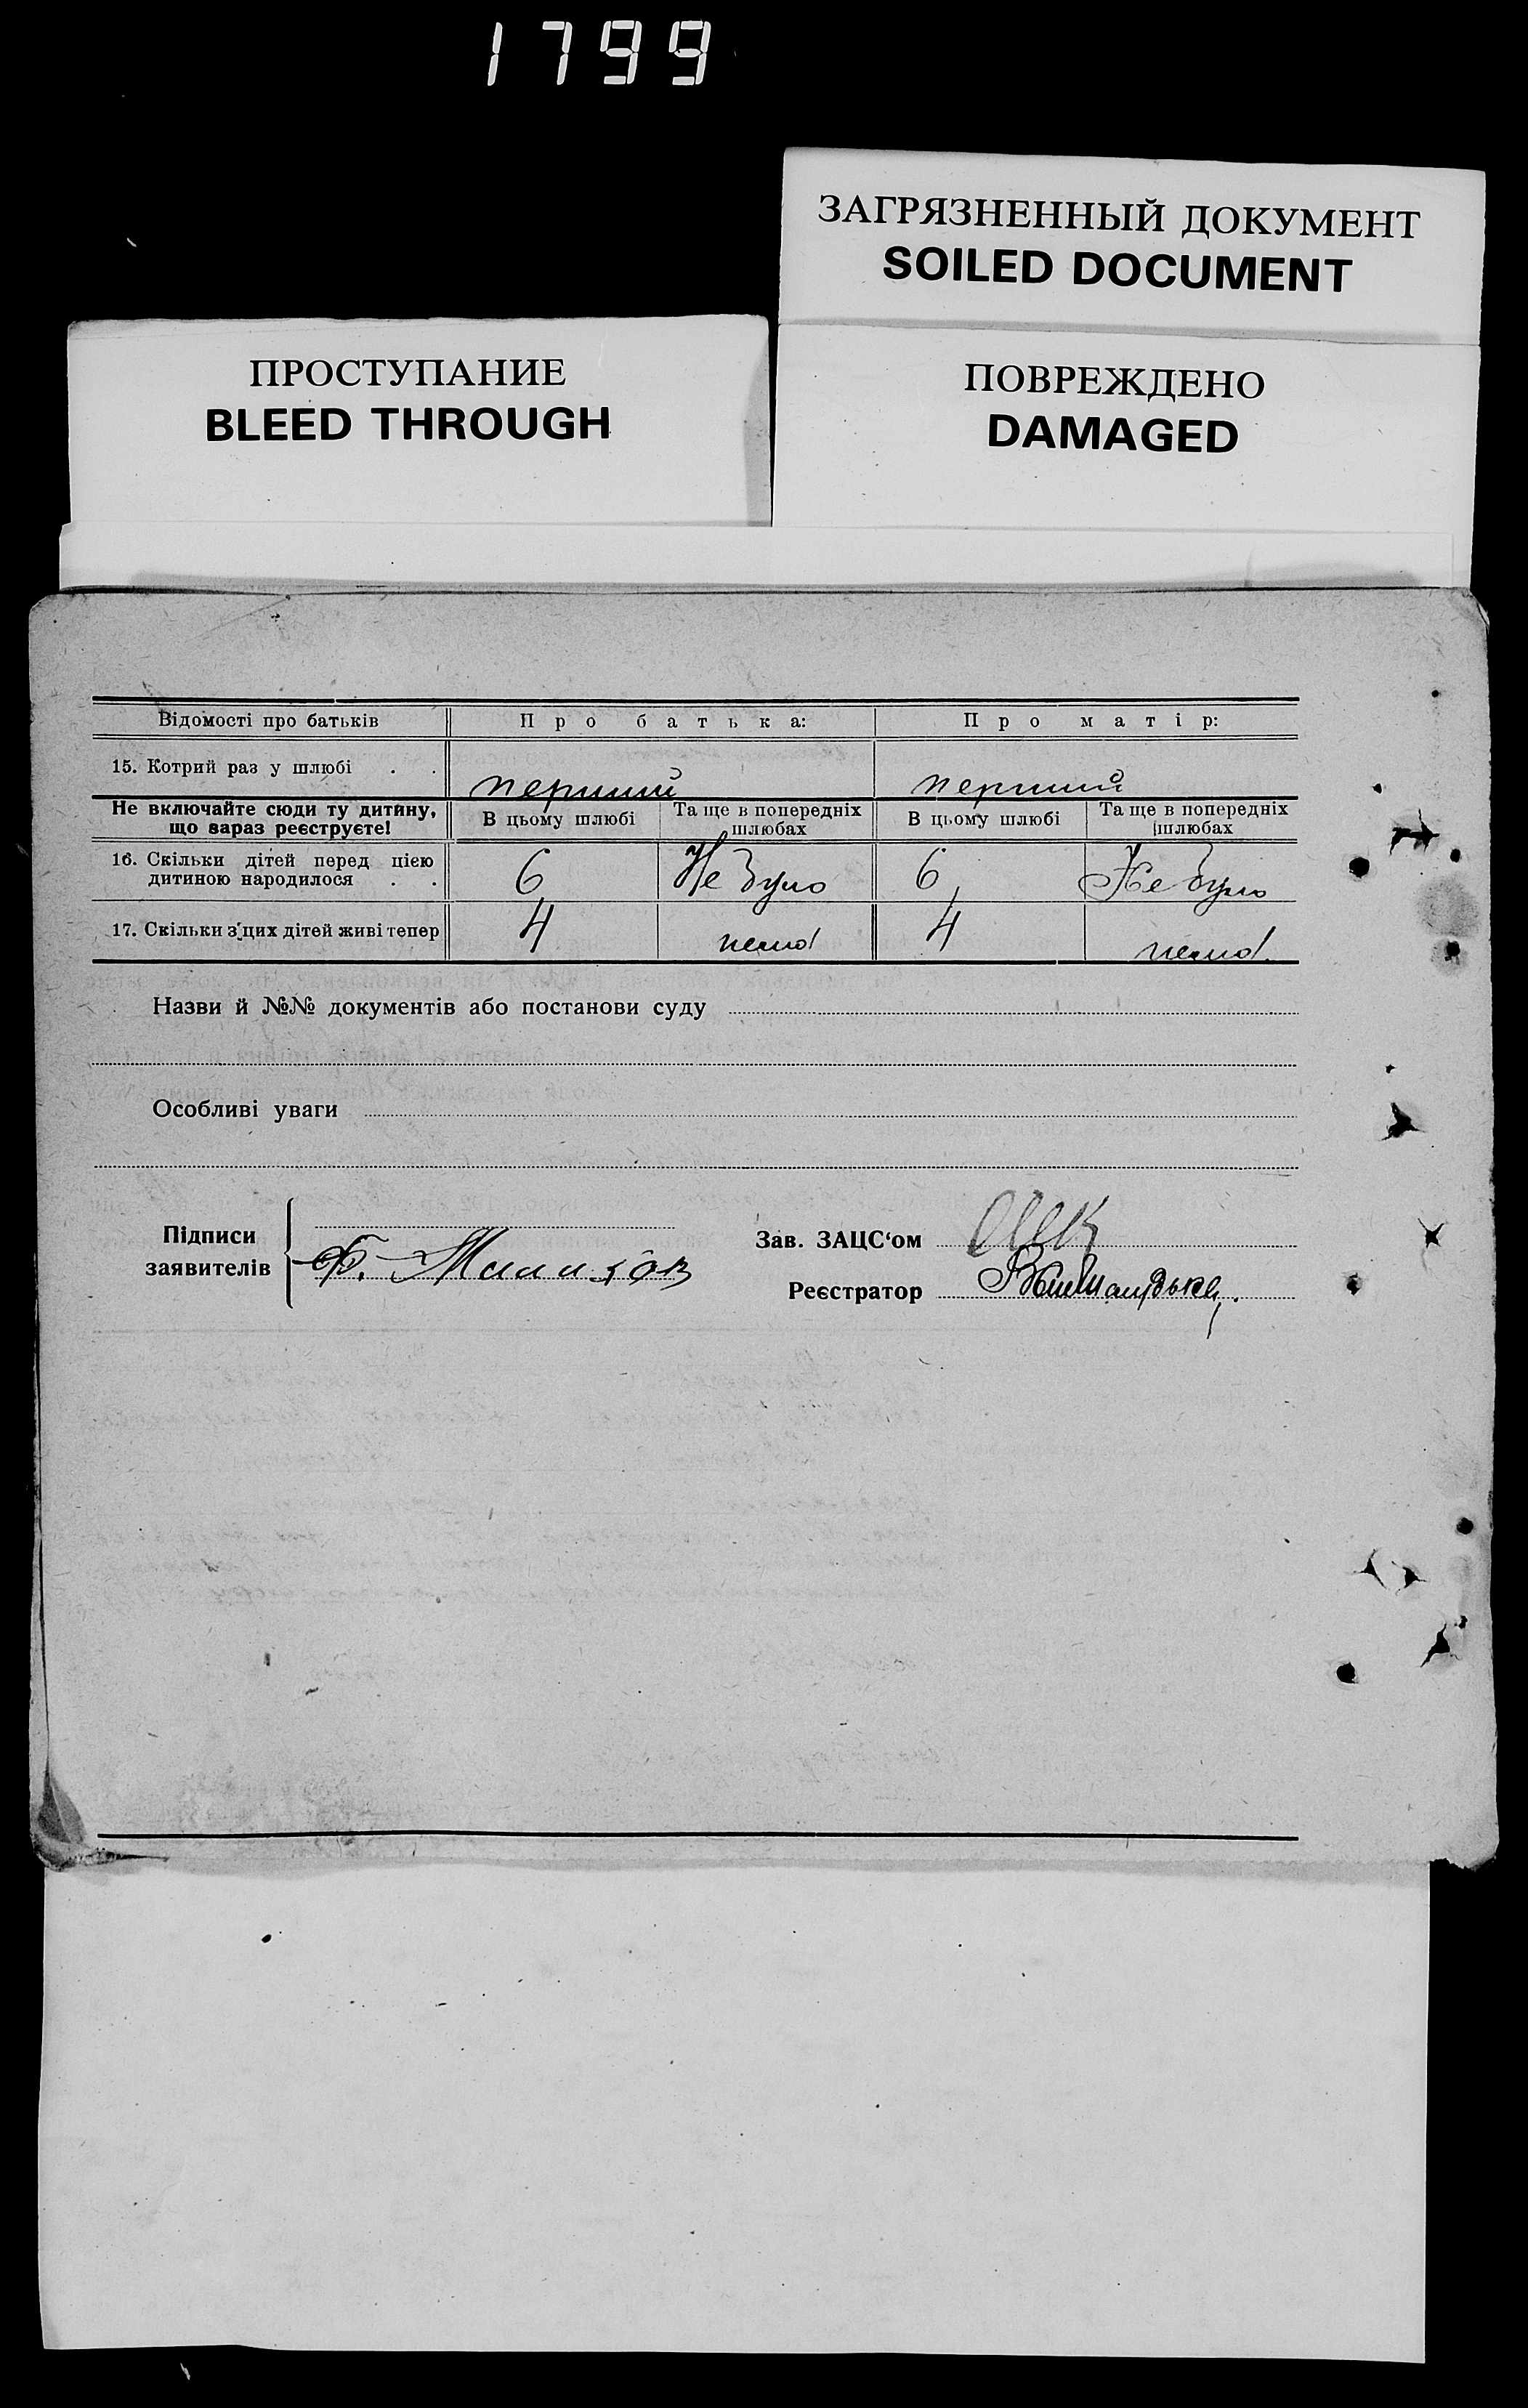 1799
ЗАГРЯЗНЕННЫЙ ДОКУМЕНТ
SOILED DOCUMENT
ПРОСТУПАНИЕ
BLEED THROUGH
ПОВРЕЖДЕНО
DAMAGED
Відомості про батьків Про батька: Про матір:
15. Котрий раз у шлюбі . . перший перший
Не включайте сюди ту дитину, що зараз реєструєте! В цьому шлюбі Та ще в попередніх шлюбах В цьому шлюбі Та ще в попередніх шлюбах
16. Скільки дітей перед цією
дитиною народилося . . 6 Не було 6 Не було
17. Скільки з цих дітей живі тепер 4 нема 4 нема
Назви й №№ документів або постанови суду
Особливі уваги
Підписи
заявителів
Ф.
Зав. ЗАЦС‘ом
Реєстратор